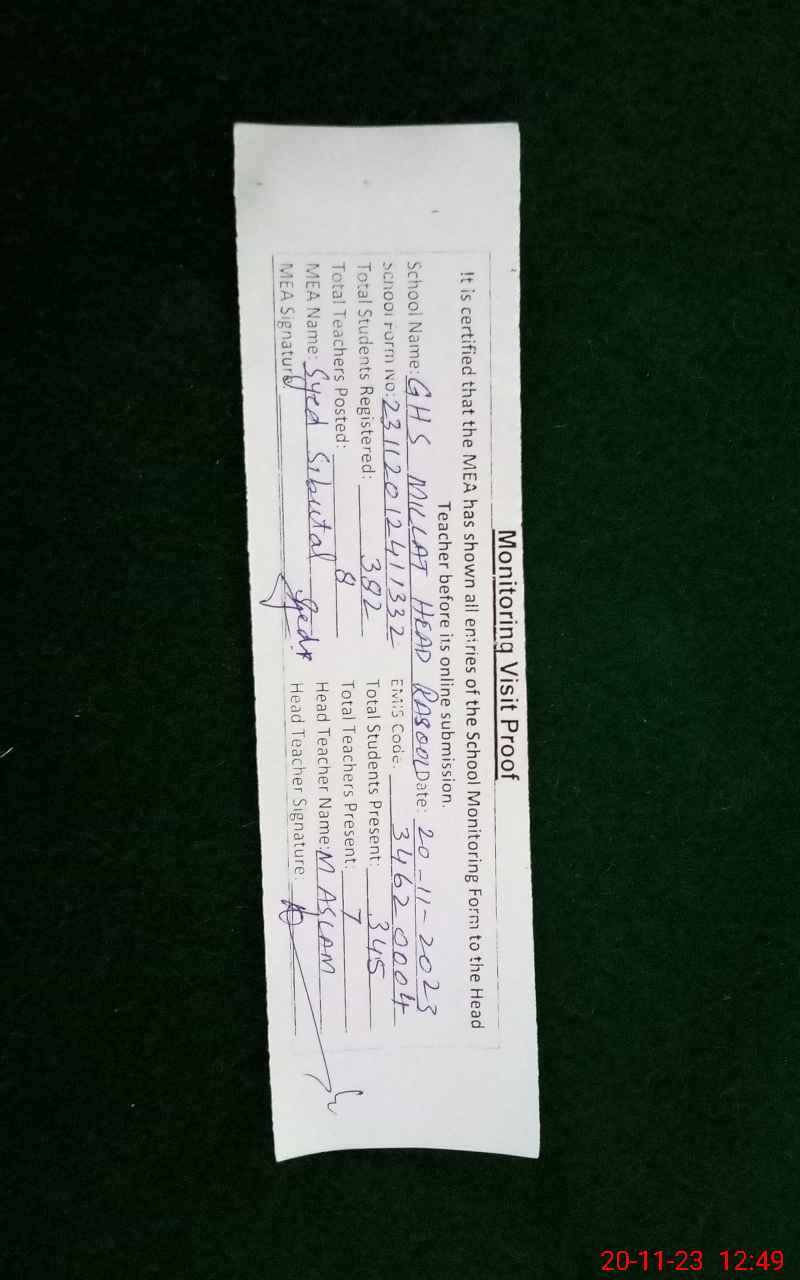 Monitoring Visit Proof
It is certified that the MEA has shown all entries of the School Monitoring Form to the Head
Teacher before its online submission.
School Name: GHS MILLAT HEAD RASOOL Date: 20-11-2023
School Form No: 23112012411332 EMIS Code: 34620004
Total Students Registered: 382 Total Students Present: 345
Total Teachers Posted: 8 Total Teachers Present: 7
MEA Name: Syed Sibutal Head Teacher Name: M ASLAM
MEA Signature Head Teacher Signature:
20-11-23 12:49